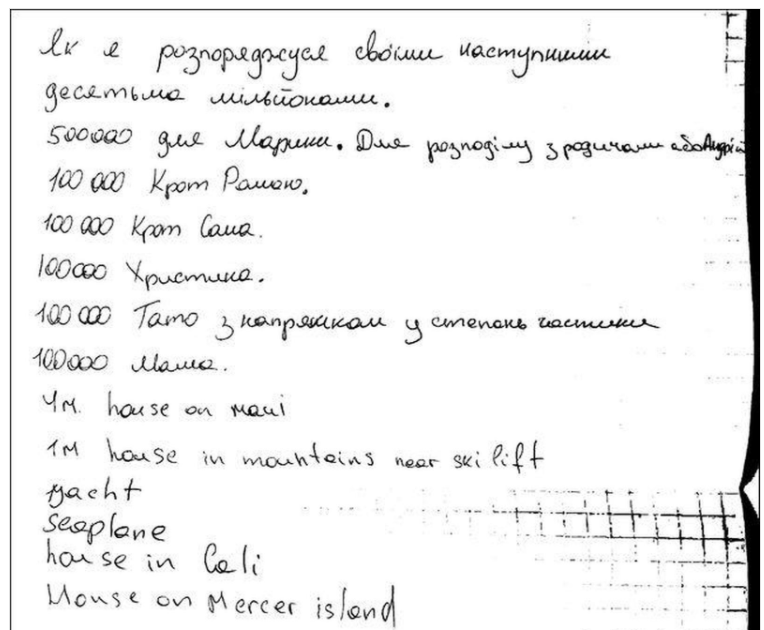 Як я розпоряджуся своїми наступними
десятьма мільйонами.
500000 для Марини. Для розподілу з родичами або Андрій
100 000 Крот Рамою.
100 000 Крот Саша.
100000 Христина.
100 000 Тато з напряжком у степень частини
100000 Мама.
4м. house on маui
1м house in mountains near ski lift
yacht
seaplane
house in Cali
House on Mercer island